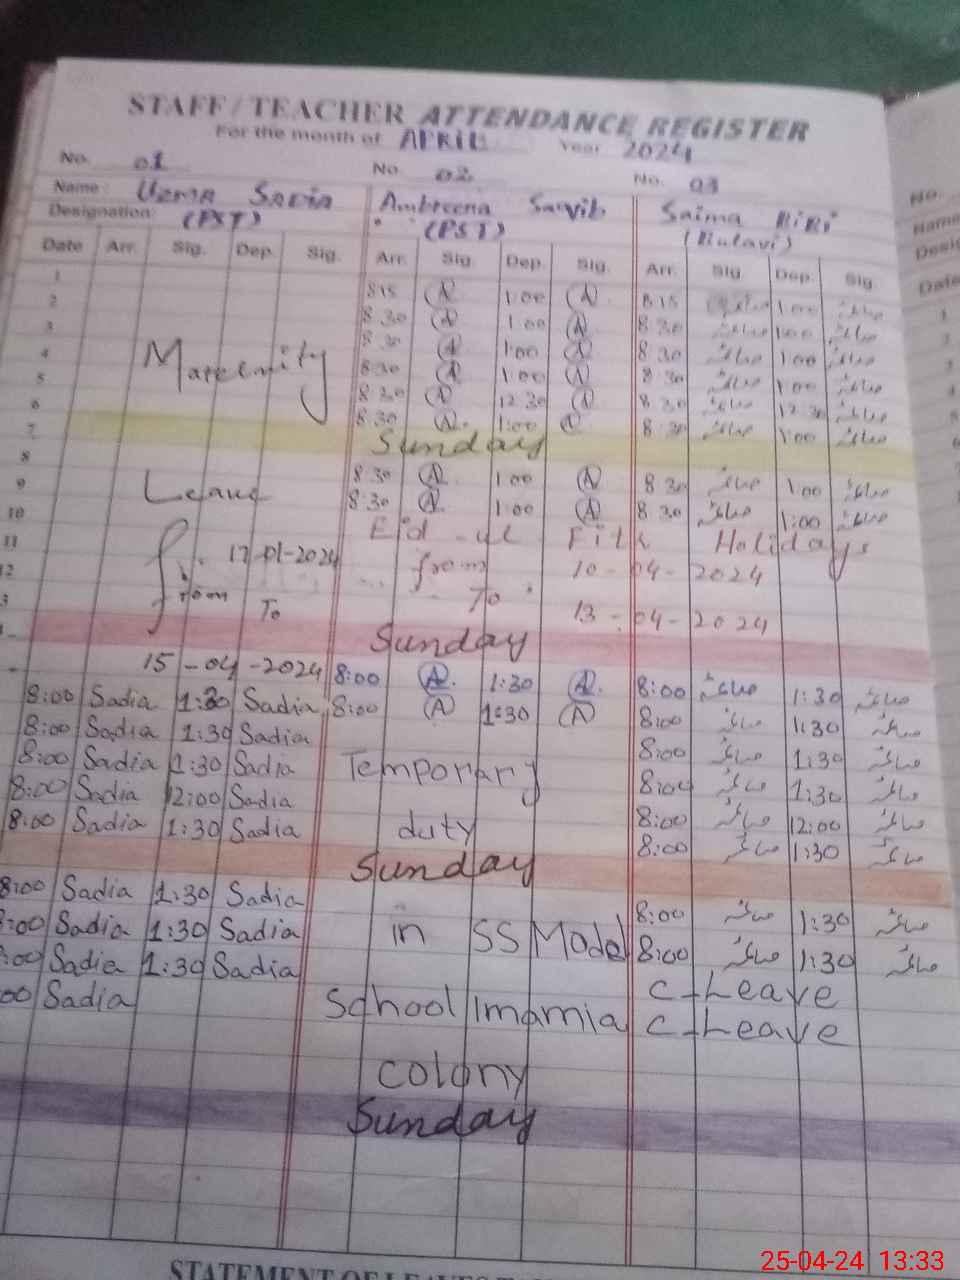 STAFF/TEACHER ATTENDANCE REGISTER
For the month of APRIL Year 2024
No. 01 No. 02 No. 03
Name: Uzma Sadia Ambreena Saqib Saima BiBi
Designation: (PST) (PST)
Date Arr. Sig. Dep. Sig. Arr. Sig. Dep. Sig. Arr. Sig. Dep. Sig.
1 8:15 A 1:00 A 8:15 صائمہ 1:00 صائمہ
2 8:30 A 1:00 A 8:30 صائمہ 1:00 صائمہ
3 8:30 A 1:00 A 8:30 صائمہ 1:00 صائمہ
4 Maternity 8:30 A 1:00 A 8:30 صائمہ 1:00 صائمہ
5 8:30 A 12:30 A 8:30 صائمہ 12:30 صائمہ
6 8:30 A. 1:00 A 8:30 صائمہ 1:00 صائمہ
7 Sunday
8 8:30 A 1:00 A 8:30 صائمہ 1:00 صائمہ
9 Leave 8:30 A 1:00 A 8:30 صائمہ 1:00 صائمہ
10 Eid-ul Fitr Holidays
11 from 10-04-2024
12 From To To 13-04-2024
Sunday
15-04-2024 8:00 A. 1:30 A. 8:00 صائمہ 1:30 صائمہ
8:00 Sadia 1:30 Sadia 8:00 A 1:30 A 8:00 صائمہ 1:30 صائمہ
8:00 Sadia 1:30 Sadia 8:00 صائمہ 1:30 صائمہ
8:00 Sadia 1:30 Sadia Temporary 8:00 صائمہ 1:30 صائمہ
8:00 Sadia 12:00 Sadia 8:00 صائمہ 12:00 صائمہ
8:00 Sadia 1:30 Sadia duty 8:00 صائمہ 1:30 صائمہ
Sunday
8:00 Sadia 1:30 Sadia 8:00 صائمہ 1:30 صائمہ
8:00 Sadia 1:30 Sadia in SS Model 8:00 صائمہ 1:30 صائمہ
:00 Sadia 1:30 Sadia C-Leave
00 Sadia School Imamia C-Leave
colony
Sunday
25-04-24 13:33